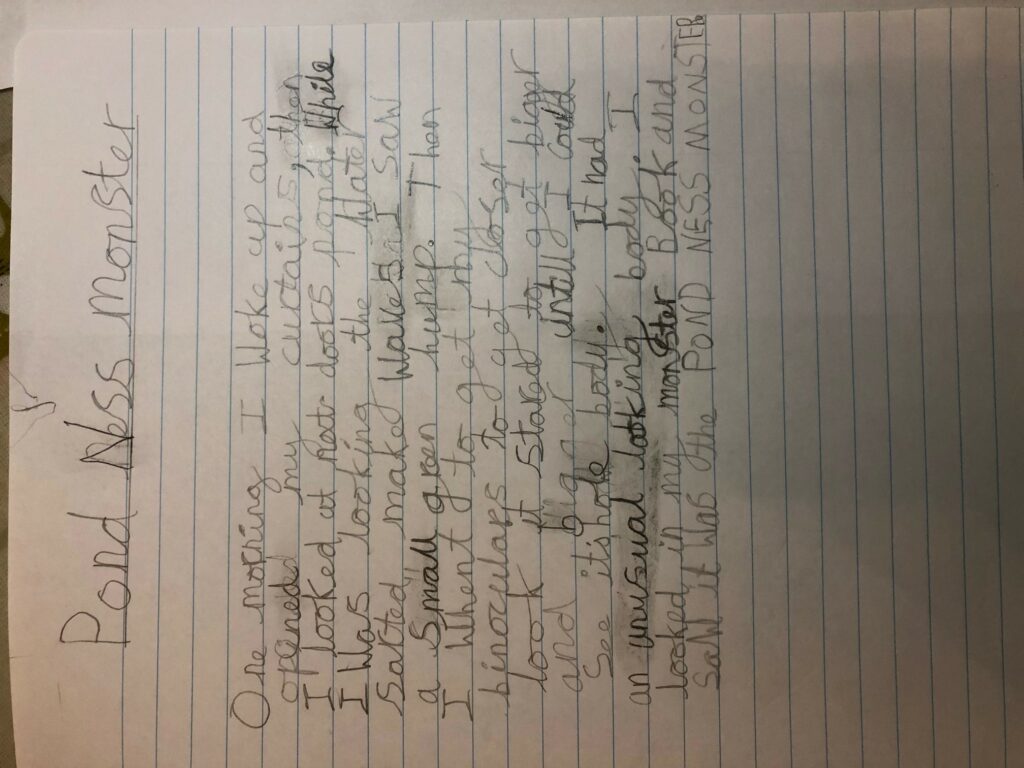 Pond Ness monster
One moring I woke up and
opened my curtains, then
I looked at next-doors pond. While
I was looking the water
satted making waves. I saw
a small green hump. Then
I whent to get my
binoculars to get closer
look. It stared to get bigger
and bigger untill I could
see its hole body. It had
an unusual looking body. I
looked in my monster Book and
saw it was the POND NESS MONSTER